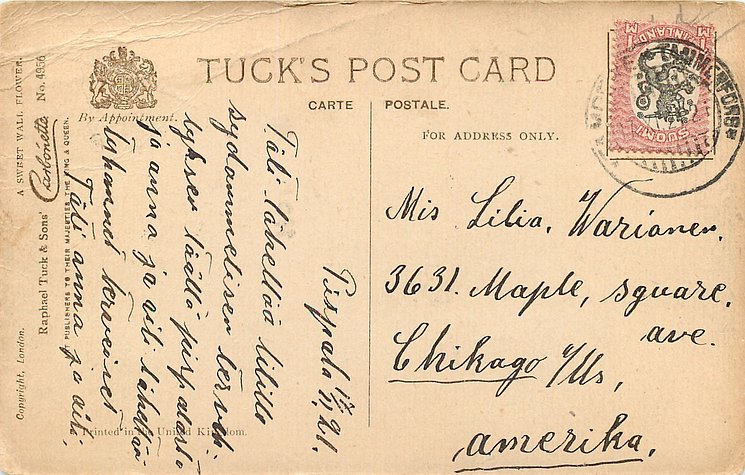 TUCK'S POST CARD
CARTE POSTALE.
By Appointment.
FOR ADDRESS ONLY.
A SWEET WALL FLOWER.
Carbonette No. 4956
Raphael Tuck & Sons'
ART PUBLISHERS TO THEIR MAJESTIES THE KING & QUEEN.
Copyright, London.
Printed in the United Kingdom.
SUOMI
FINLAND
TAMMERFORS
Pispala 1/11 21.
Täti lähettää Lilille
sydammelisen terveh
täällä pispalasta
ja anna ja aili lähettää
tuhannet terveiset
Täti anna ja aili
Mis Lilia. Warianen.
3631. Maple, sguare.
ave.
Chikago
amerika.